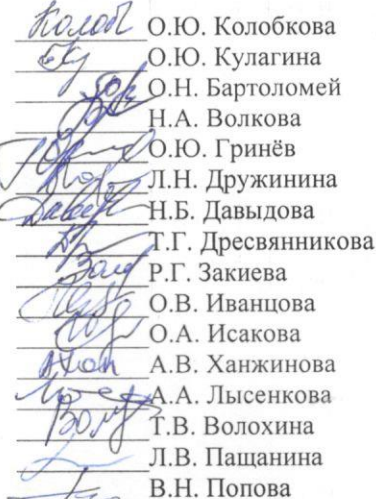 О.Ю. Колобкова
О.Ю. Кулагина
О.Н. Бартоломей
Н.А. Волкова
О.Ю. Гринёв
Л.Н. Дружинина
Н.Б. Давыдова
Т.Г. Дресвянникова
Р.Г. Закиева
О.В. Иванцова
О.А. Исакова
А.В. Ханжинова
А.А. Лысенкова
Т.В. Волохина
Л.В. Пащанина
В.Н. Попова